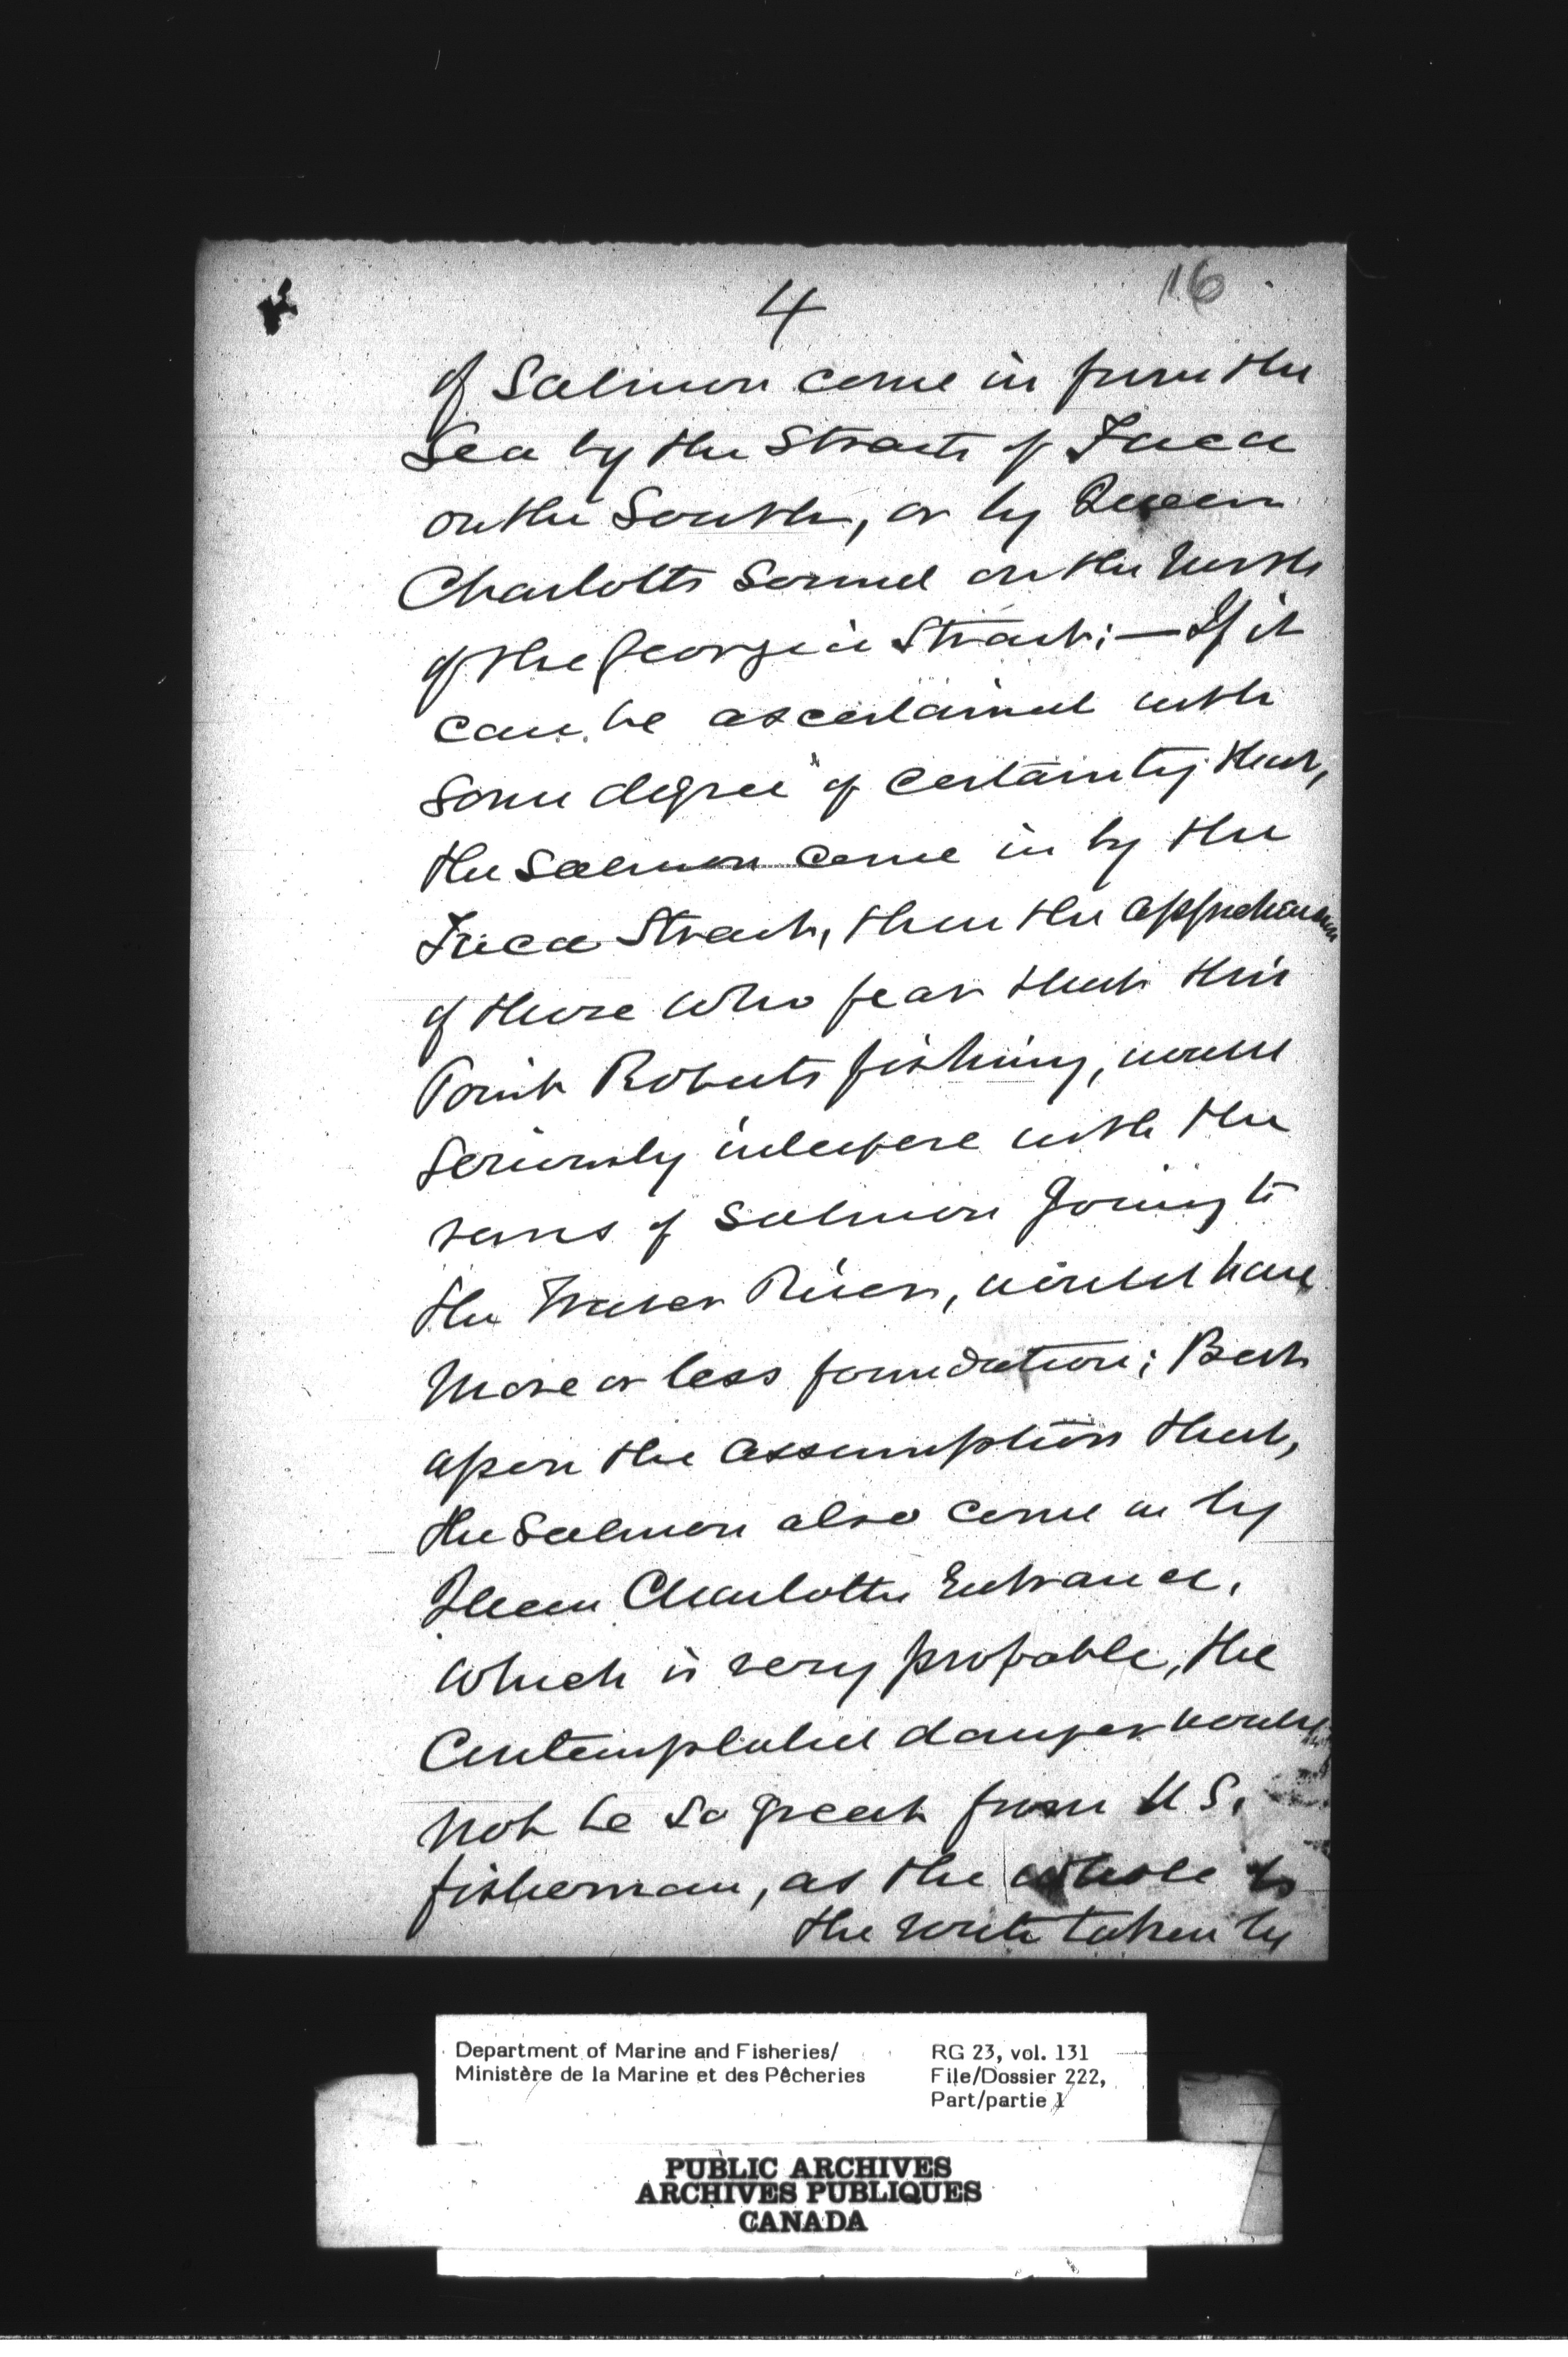 4
16
of Salmon come in from the
Sea by the Straits of Fuca
on the South, or by Queen
Charlotte Sound on the North
of the Georgia Strait; — If it
can be ascertained with
some degree of certainty that,
the Salmon come in by the
Fuca Strait, then the apprehension
of those who fear that this
Point Roberts fishing, would
seriously interfere with the
runs of Salmon going to
the Fraser River, would have
more or less foundation; But
upon the assumption that,
the Salmon also come in by
Queen Charlotte Entrance,
which is very probable, the
Contemplated danger would
not be so great from U S.
fisherman, as the whole
the route taken by
Department of Marine and Fisheries/
Ministère de la Marine et des Pêcheries
RG 23, vol. 131
File/Dossier 222,
Part/partie 1
PUBLIC ARCHIVES
ARCHIVES PUBLIQUES
CANADA